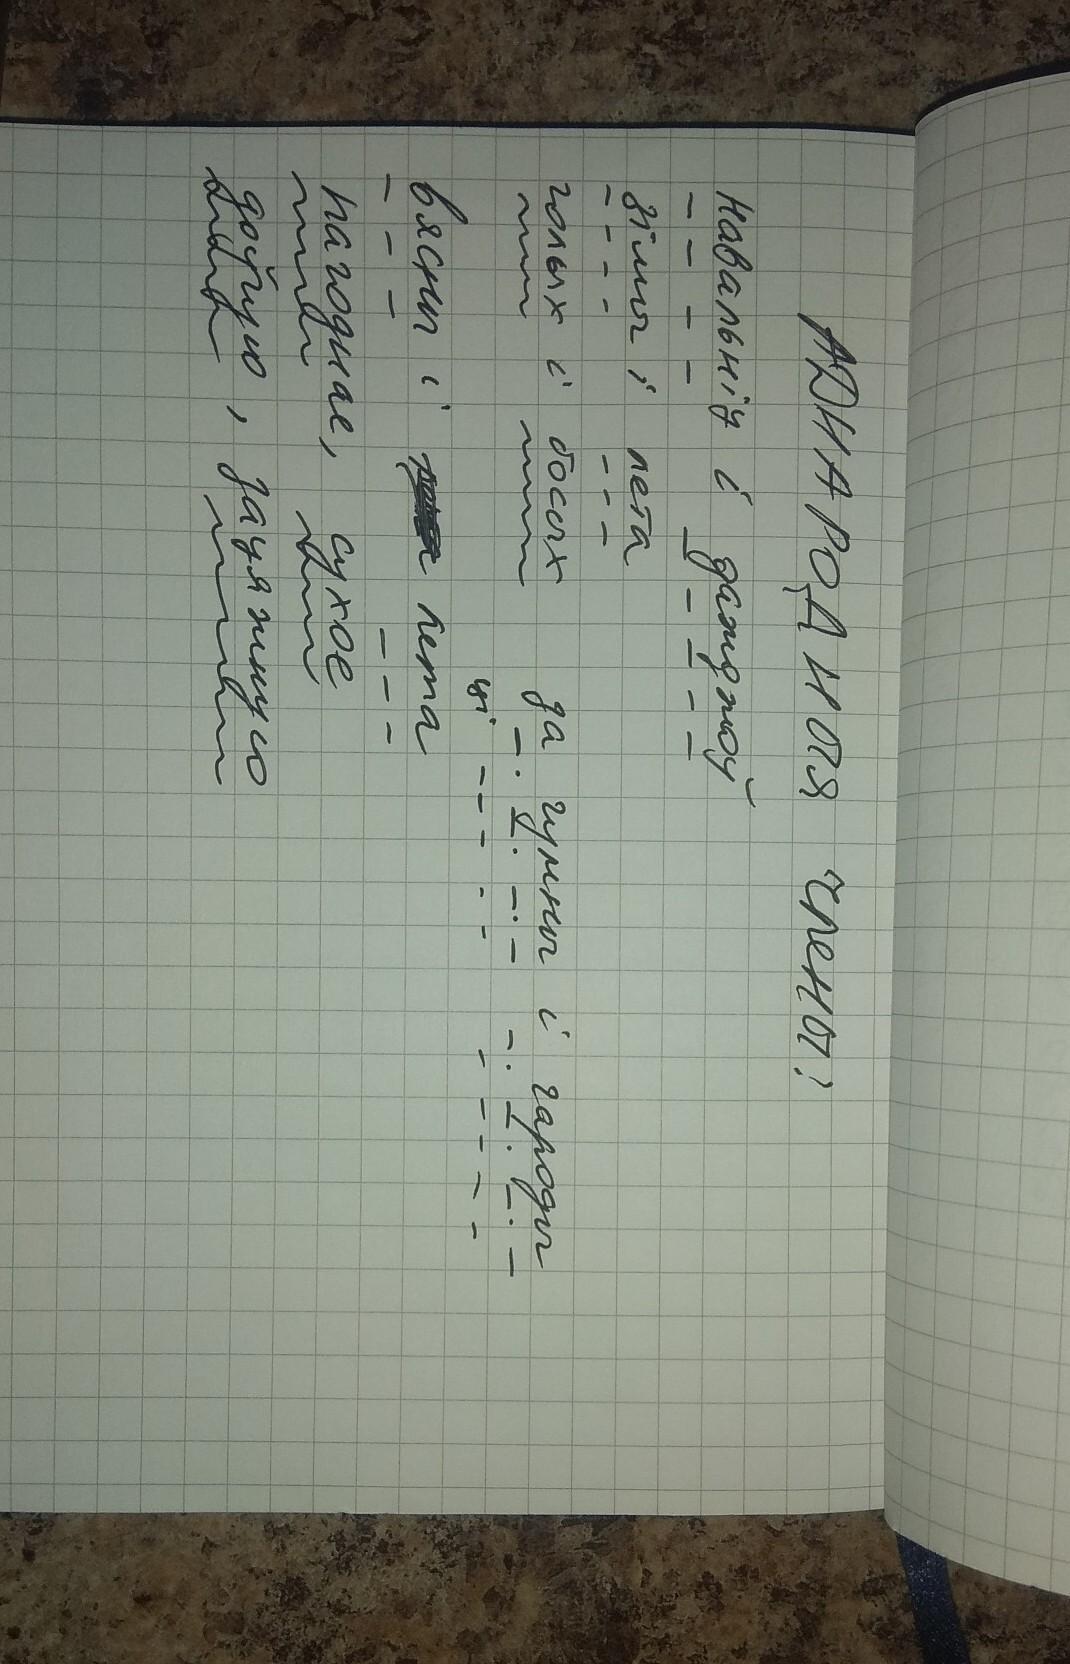 АДНАРОДНЫЯ ЧЛЕНЫ:
навальніц і дажджоў
зімы і лета
голых і босых
да гумны і гароды
ці
вясны і лета
пагоднае, сухое
доўгую, зацяжную